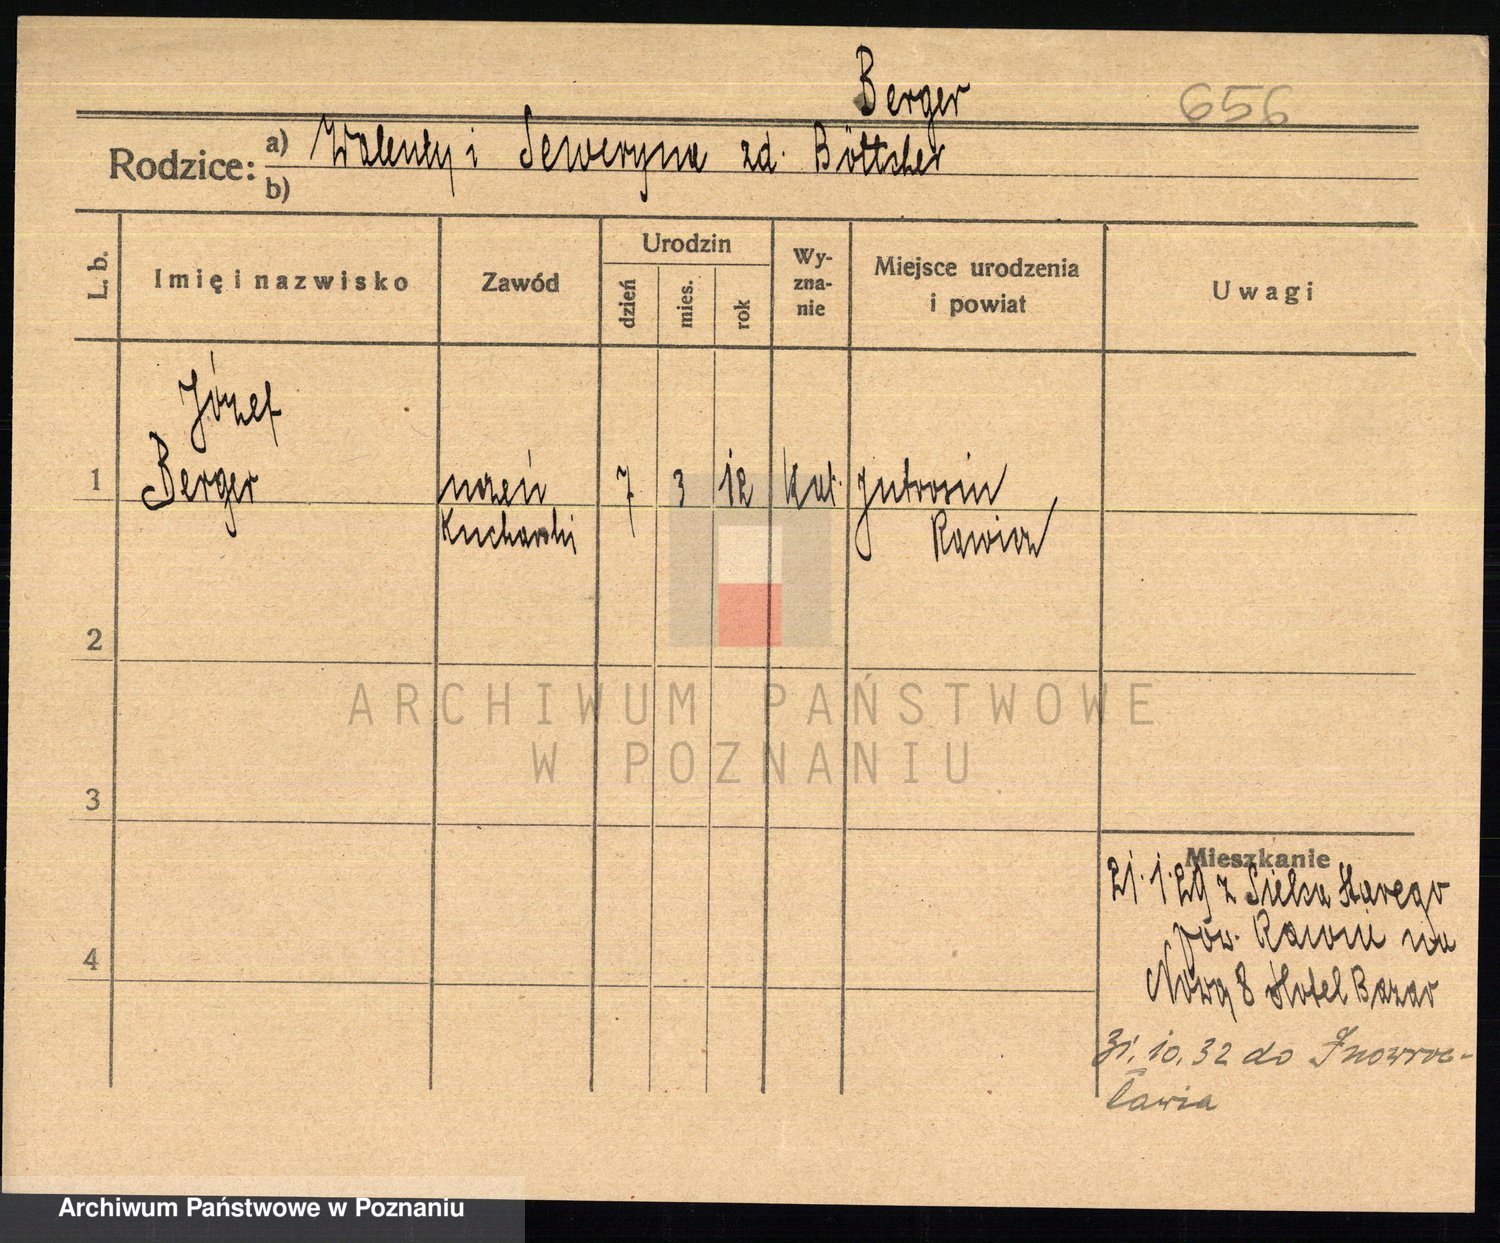 Berger
656
Rodzice: a) Walenty i Seweryna zd. Böttcher
b)
L. b.
Imię i nazwisko
Zawód
Urodzin
dzień
mies.
rok
Wy-
zna-
nie
Miejsce urodzenia
i powiat
Uwagi
Józef
1 Berger uczeń 7 3 12 Kat. Jutrosin
Kucharski Rawicz
2
3
4
Mieszkanie
21.1.29 z Sielca Starego
pow. Rawicz na
Nową 8 Hotel Bazar
31.10.32 do Inowroc-
ławia
ARCHIWUM PAŃSTWOWE
W POZNANIU
Archiwum Państwowe w Poznaniu